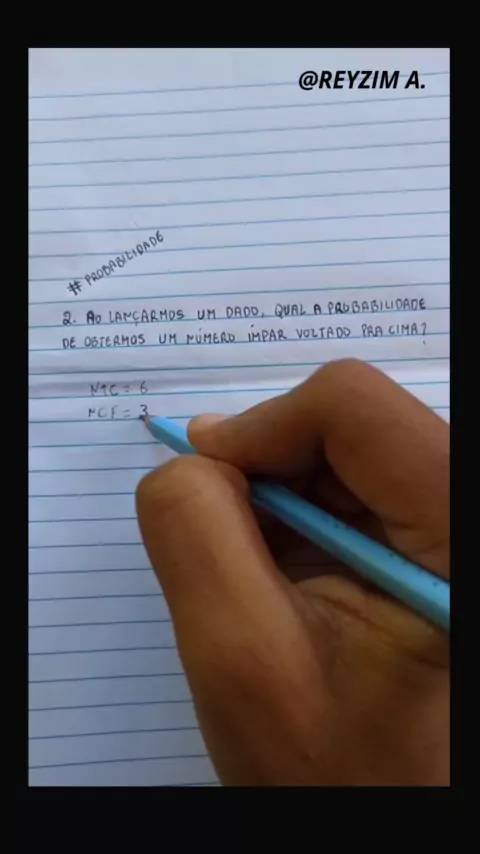 @REYZIM A.
# PROBABILIDADE
2. AO LANÇARMOS UM DADO, QUAL A PROBABILIDADE
DE OBTERMOS UM NÚMERO ÍMPAR VOLTADO PRA CIMA?
NTC = 6
NCF = 3